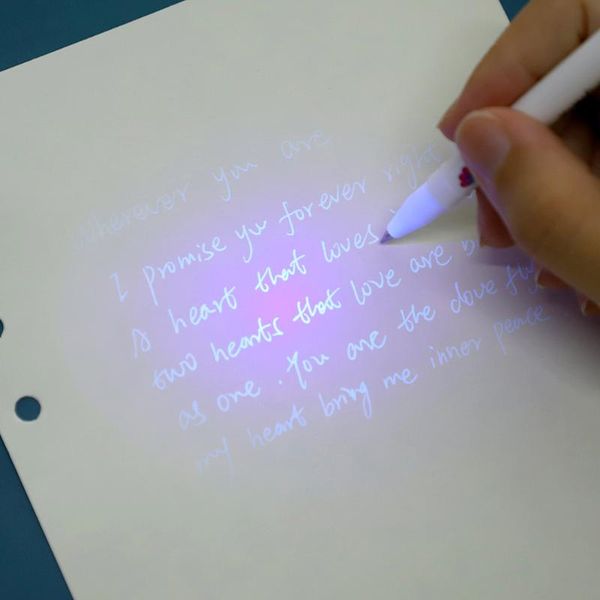 Wherever you are
I promise you forever right
A heart that loves
two hearts that love are
as one. You are the dove
my heart bring me inner peace